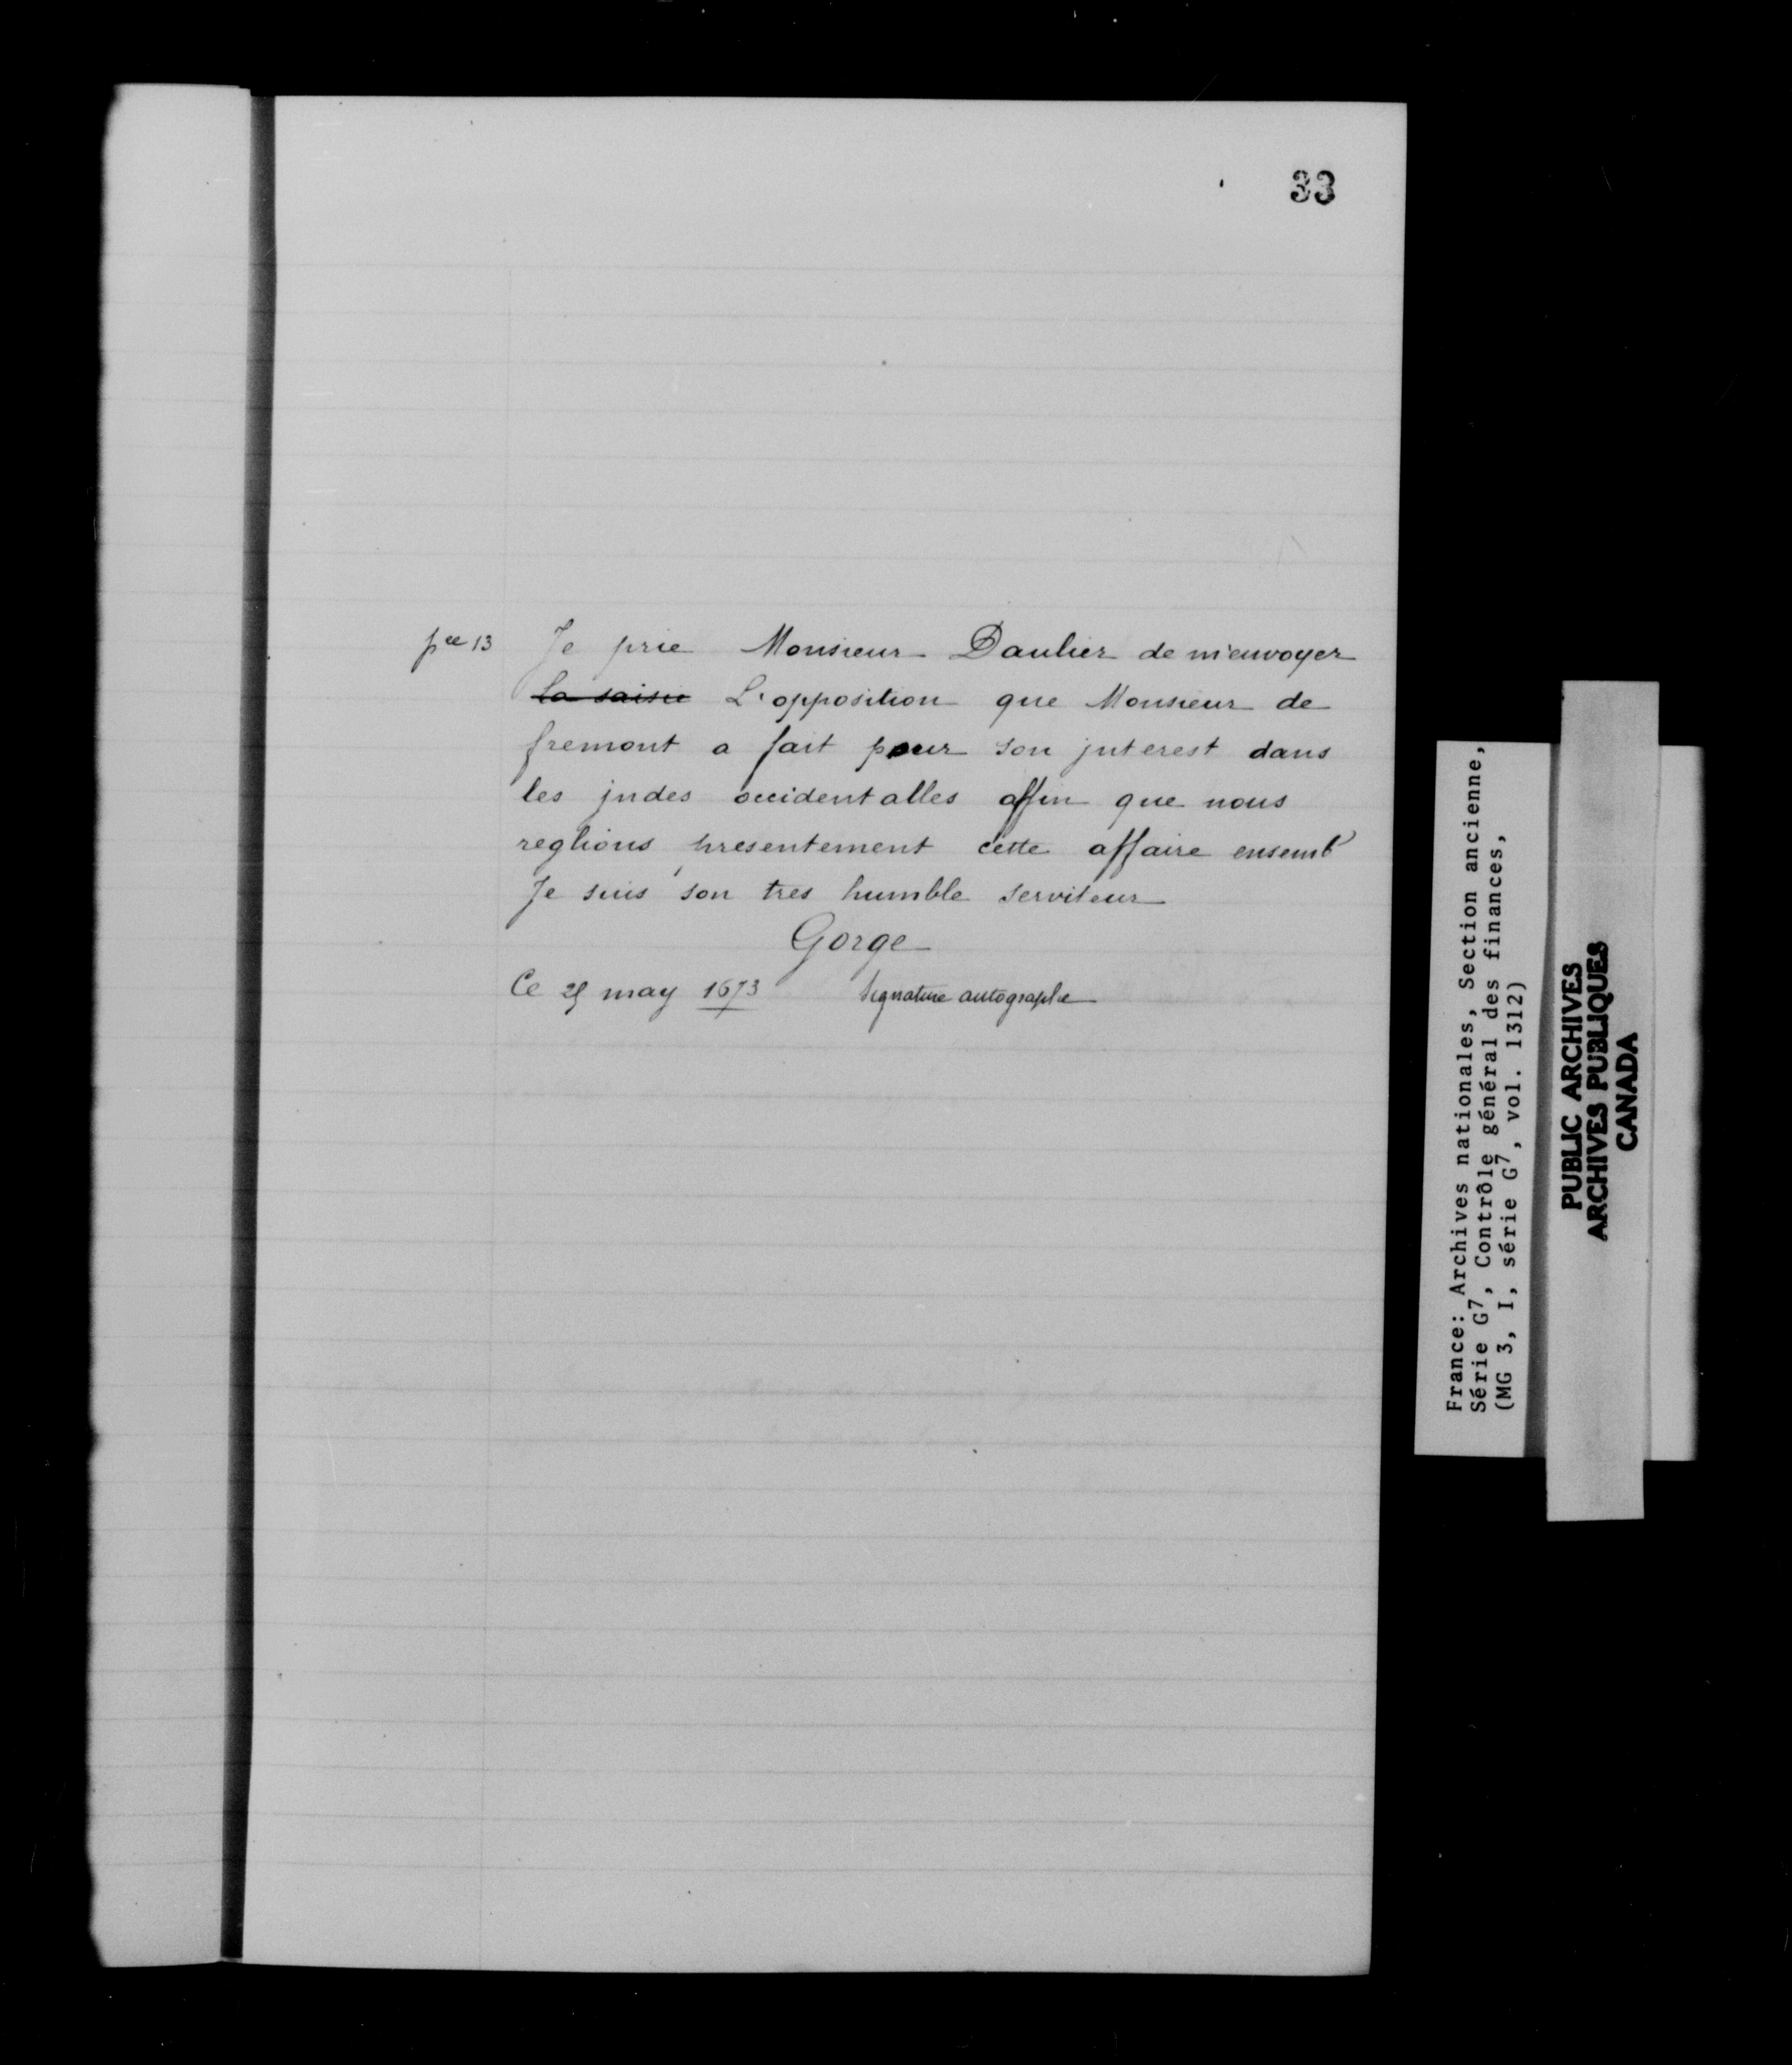 33
pce 13 Je prie Monsieur Daulier de m'envoyer
la saisie L'opposition que Monsieur de
fremont a fait pour son jnterest dans
les jndes occidentalles affin que nous
reglions presentement cette affaire ensembl
Je suis son tres humble serviteur
Gorge
Ce may 1673 Signature autographe
France: Archives nationales, Section ancienne,
Série G7, Contrôle général des finances,
(MG 3, I, série G7, vol. 1312)
PUBLIC ARCHIVES
ARCHIVES PUBLIQUES
CANADA